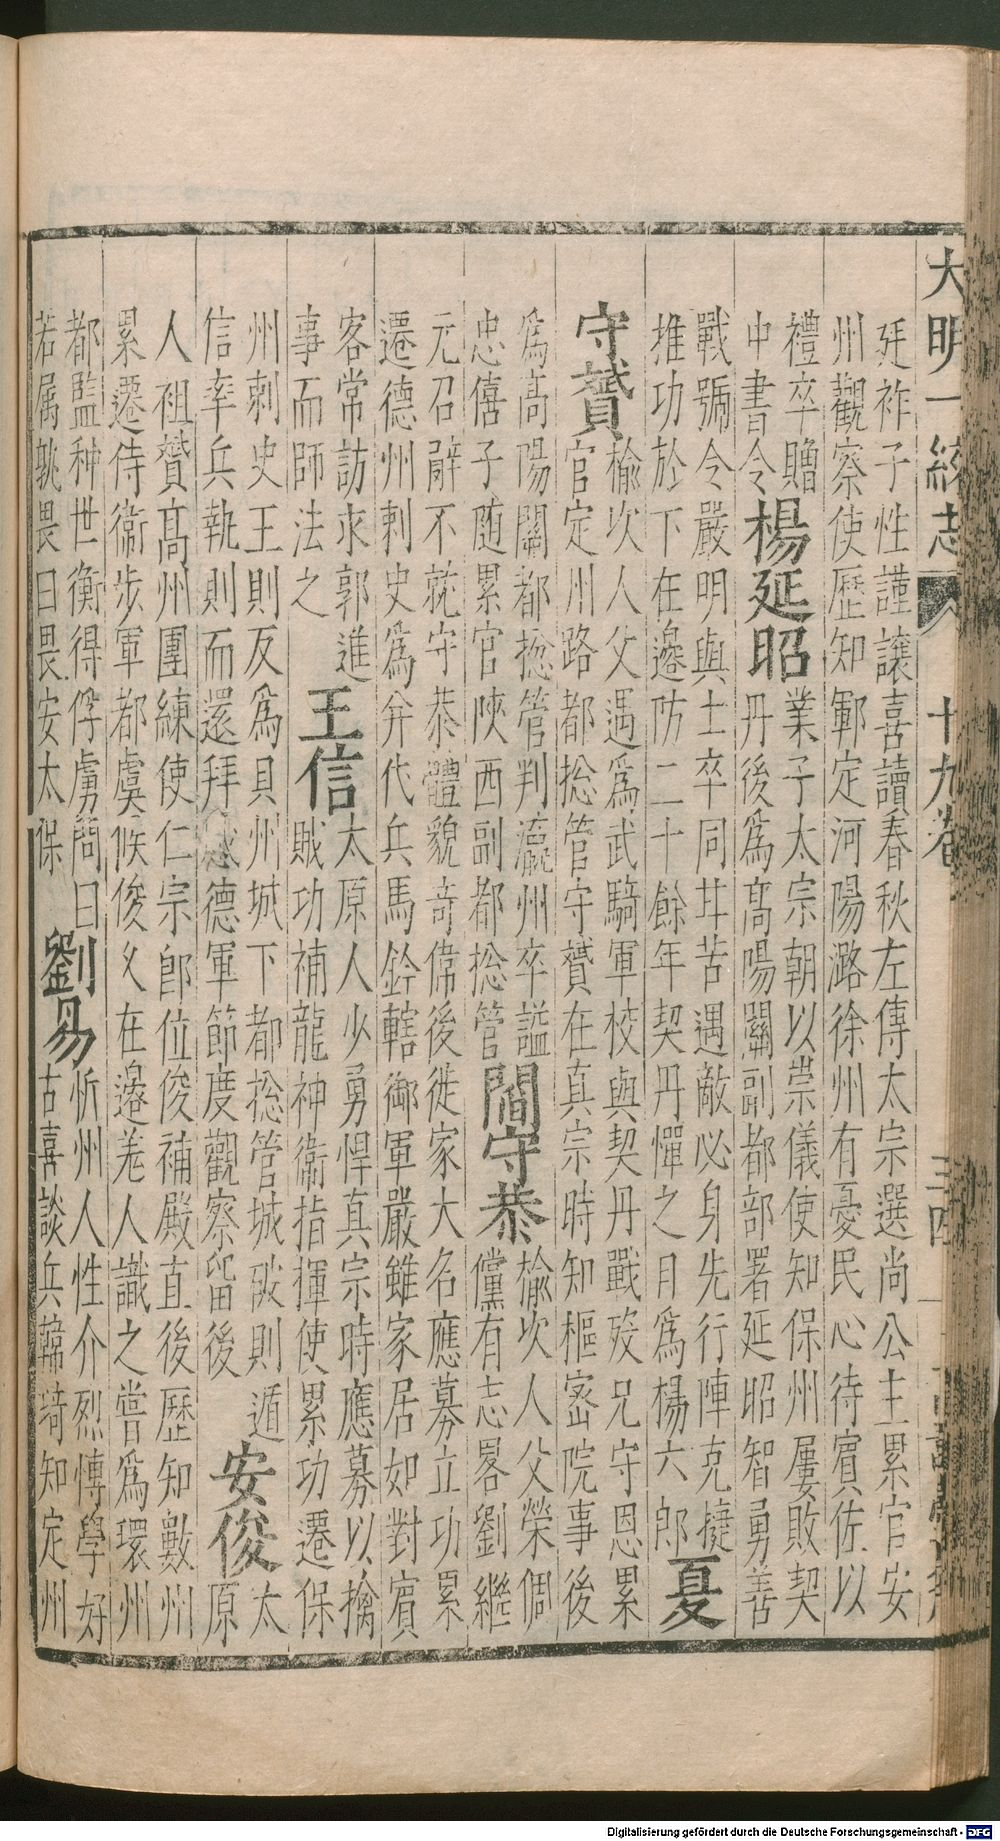 大明一統志 十九卷 三四
廷祚子性謹讓喜讀春秋左傳太宗選尚公主累官安
州觀察使歷知鄆定河陽潞徐州有憂民心待賓佐以
禮卒贈
中書令
楊延昭
業子太宗朝以崇儀使知保州屢敗契
丹後為高陽關副都部署延昭智勇善
戰號令嚴明與士卒同甘苦遇敵必身先行陣克捷
推功於下在邊防二十餘年契丹憚之目為楊六郎
夏
守贇
榆次人父遇為武騎軍校與契丹戰歿兄守恩累
官定州路都揔管守贇在真宗時知樞密院事後
為高陽關都揔管判瀛州卒謚
忠僖子随累官陝西副都揔管
閻守恭
榆次人父榮倜
儻有志畧劉繼
元召辭不就守恭體貌奇偉後徙家大名應募立功累
遷德州刺史為并代兵馬鈐轄御軍嚴雖家居如對賓
客常訪求郭進
事而師法之
王信
太原人少勇悍真宗時應募以擒
賊功補龍神衛指揮使累功遷保
州刺史王則反為貝州城下都揔管城破則遁
信率兵執則而還拜 德軍節度觀察留後
安俊
太
原
人祖贇高州團練使仁宗即位俊補殿直後歷知數州
累遷侍衛步軍都虞候俊久在邊羌人識之嘗為環州
都監种世衡得俘虜問曰
若属孰畏曰畏安太保
劉易
忻州人性介烈愽學好
古喜談兵韓琦知定州
Digitalisierung gefördert durch die Deutsche Forschungsgemeinschaft - DFG